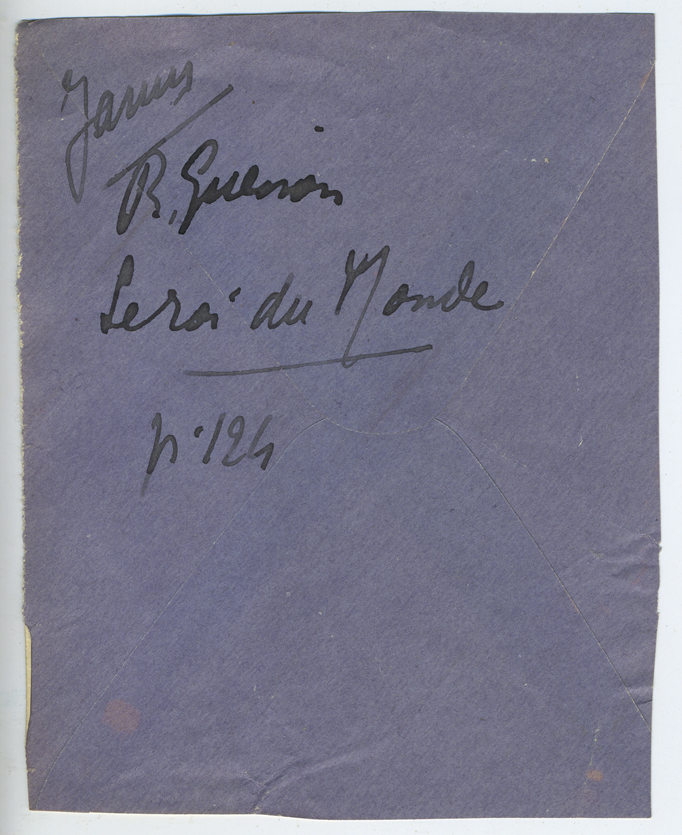 Janus
R. Guenon
Le roi du Monde
p. 124